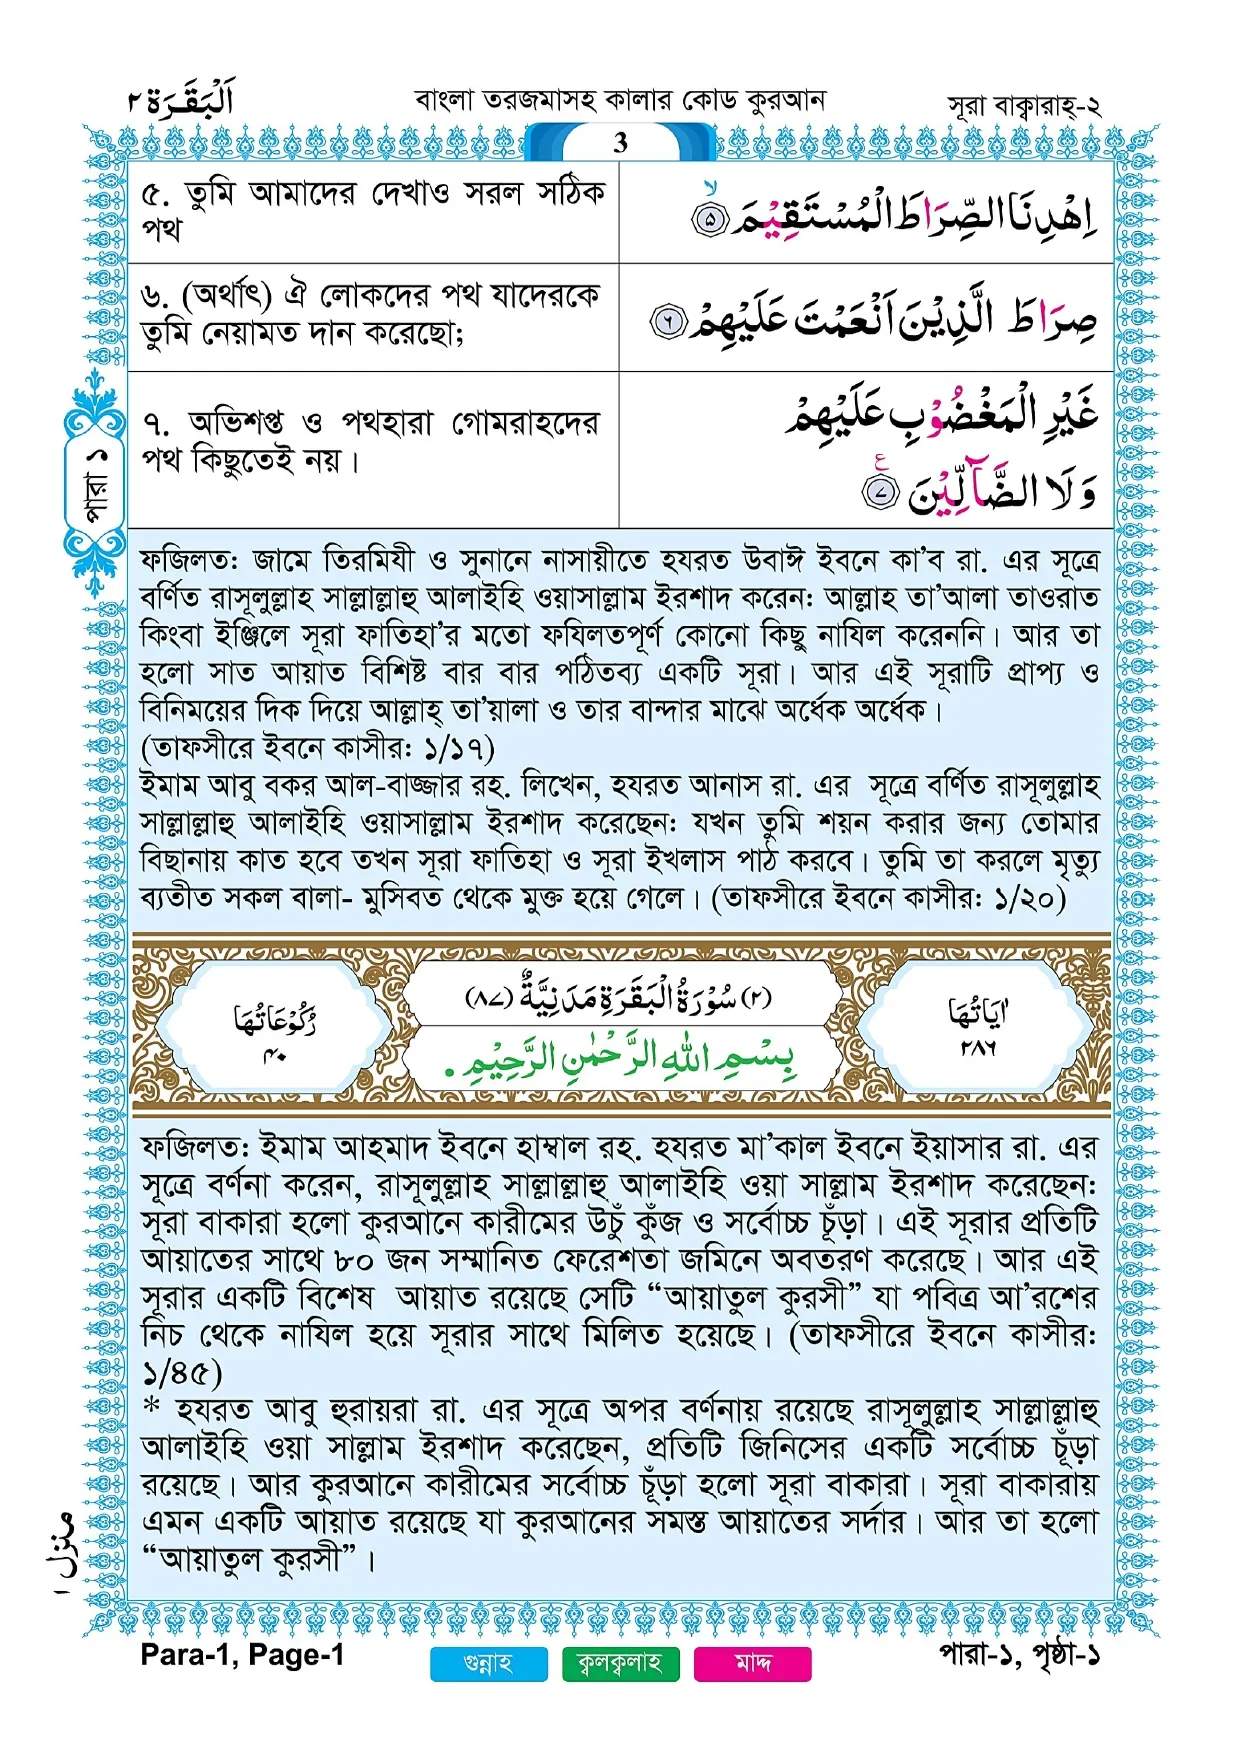 اَلْبَقَرَة ٢
বাংলা তরজমাসহ কালার কোড কুরআন
সূরা বাক্বারাহ্-২
3
৫. তুমি আমাদের দেখাও সরল সঠিক
পথ
اِهْدِنَا الصِّرَاطَ الْمُسْتَقِيْمَ ۙ ٥
৬. (অর্থাৎ) ঐ লোকদের পথ যাদেরকে
তুমি নেয়ামত দান করেছো;
صِرَاطَ الَّذِيْنَ اَنْعَمْتَ عَلَيْهِمْ ٦
৭. অভিশপ্ত ও পথহারা গোমরাহদের
পথ কিছুতেই নয়।
غَيْرِ الْمَغْضُوْبِ عَلَيْهِمْ
وَلَا الضَّآلِّيْنَ ع ٧
পারা ১
ফজিলত: জামে তিরমিযী ও সুনানে নাসায়ীতে হযরত উবাঈ ইবনে কা’ব রা. এর সূত্রে
বর্ণিত রাসূলুল্লাহ সাল্লাল্লাহু আলাইহি ওয়াসাল্লাম ইরশাদ করেন: আল্লাহ তা’আলা তাওরাত
কিংবা ইঞ্জিলে সূরা ফাতিহা’র মতো ফযিলতপূর্ণ কোনো কিছু নাযিল করেননি। আর তা
হলো সাত আয়াত বিশিষ্ট বার বার পঠিতব্য একটি সূরা। আর এই সূরাটি প্রাপ্য ও
বিনিময়ের দিক দিয়ে আল্লাহ্ তা’য়ালা ও তার বান্দার মাঝে অর্ধেক অর্ধেক।
(তাফসীরে ইবনে কাসীর: ১/১৭)
ইমাম আবু বকর আল-বাজ্জার রহ. লিখেন, হযরত আনাস রা. এর সূত্রে বর্ণিত রাসূলুল্লাহ
সাল্লাল্লাহু আলাইহি ওয়াসাল্লাম ইরশাদ করেছেন: যখন তুমি শয়ন করার জন্য তোমার
বিছানায় কাত হবে তখন সূরা ফাতিহা ও সূরা ইখলাস পাঠ করবে। তুমি তা করলে মৃত্যু
ব্যতীত সকল বালা- মুসিবত থেকে মুক্ত হয়ে গেলে। (তাফসীরে ইবনে কাসীর: ১/২০)
اٰيَاتُهَا
٢٨٦
(٢) سُوْرَةُ الْبَقَرَةِ مَدَنِيَّةٌ (٨٧)
بِسْمِ اللهِ الرَّحْمٰنِ الرَّحِيْمِ.
رُكُوْعَاتُهَا
٤٠
ফজিলত: ইমাম আহমাদ ইবনে হাম্বাল রহ. হযরত মা’কাল ইবনে ইয়াসার রা. এর
সূত্রে বর্ণনা করেন, রাসূলুল্লাহ সাল্লাল্লাহু আলাইহি ওয়া সাল্লাম ইরশাদ করেছেন:
সূরা বাকারা হলো কুরআনে কারীমের উচুঁ কুঁজ ও সর্বোচ্চ চূঁড়া। এই সূরার প্রতিটি
আয়াতের সাথে ৮০ জন সম্মানিত ফেরেশতা জমিনে অবতরণ করেছে। আর এই
সূরার একটি বিশেষ আয়াত রয়েছে সেটি “আয়াতুল কুরসী” যা পবিত্র আ’রশের
নিচ থেকে নাযিল হয়ে সূরার সাথে মিলিত হয়েছে। (তাফসীরে ইবনে কাসীর:
১/৪৫)
* হযরত আবু হুরায়রা রা. এর সূত্রে অপর বর্ণনায় রয়েছে রাসূলুল্লাহ সাল্লাল্লাহু
আলাইহি ওয়া সাল্লাম ইরশাদ করেছেন, প্রতিটি জিনিসের একটি সর্বোচ্চ চূঁড়া
রয়েছে। আর কুরআনে কারীমের সর্বোচ্চ চূঁড়া হলো সূরা বাকারা। সূরা বাকারায়
এমন একটি আয়াত রয়েছে যা কুরআনের সমস্ত আয়াতের সর্দার। আর তা হলো
“আয়াতুল কুরসী”।
منزل ١
Para-1, Page-1
গুন্নাহ
ক্বলক্বলাহ
মাদ্দ
পারা-১, পৃষ্ঠা-১